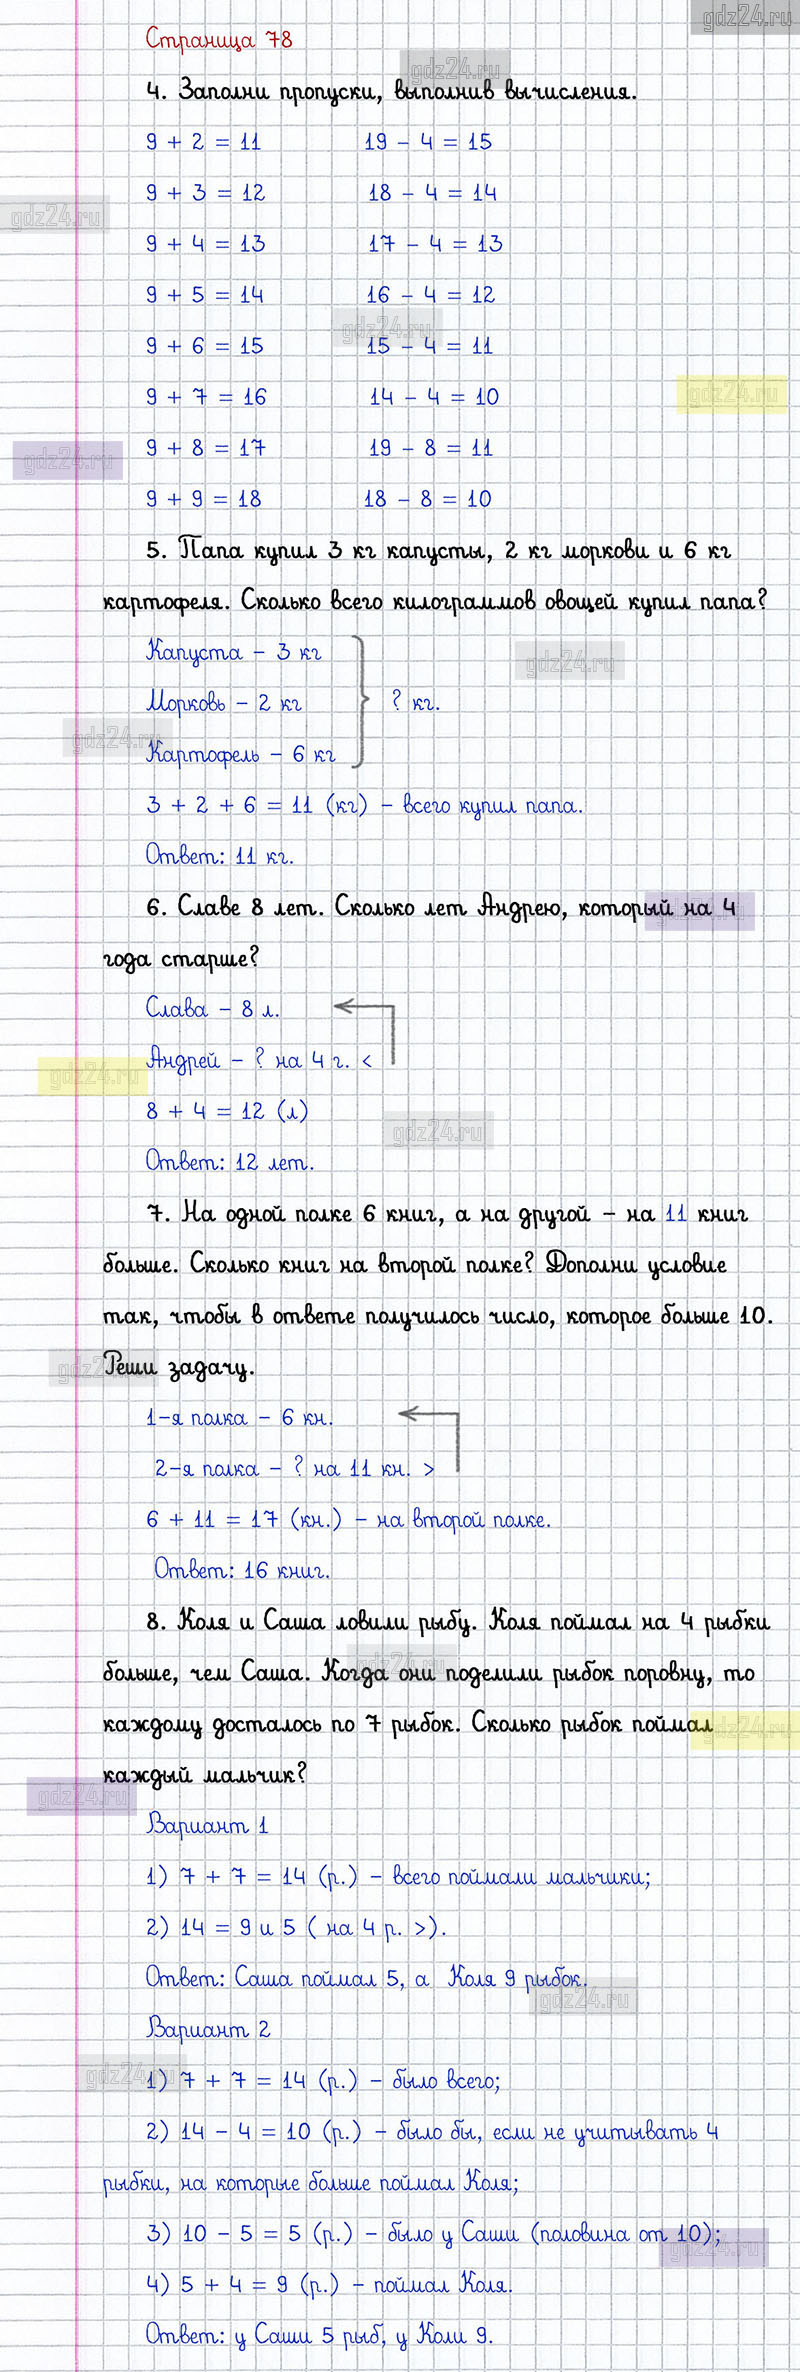 gdz24.ru
Страница 78
gdz24.ru
4. Заполни пропуски, выполнив вычисления.
9 + 2 = 11 19 - 4 = 15
9 + 3 = 12 18 - 4 = 14
gdz24.ru
9 + 4 = 13 17 - 4 = 13
9 + 5 = 14 16 - 4 = 12
gdz24.ru
9 + 6 = 15 15 - 4 = 11
9 + 7 = 16 14 - 4 = 10
gdz24.ru
9 + 8 = 17 19 - 8 = 11
gdz24.ru
9 + 9 = 18 18 - 8 = 10
5. Папа купил 3 кг капусты, 2 кг моркови и 6 кг
картофеля. Сколько всего килограммов овощей купил папа?
Капуста - 3 кг
gdz24.ru
Морковь - 2 кг ? кг.
gdz24.ru
Картофель - 6 кг
3 + 2 + 6 = 11 (кг) - всего купил папа.
Ответ: 11 кг.
6. Славе 8 лет. Сколько лет Андрею, который на 4
gdz24.ru
года старше?
Слава - 8 л.
Андрей - ? на 4 г. <
gdz24.ru
8 + 4 = 12 (л)
gdz24.ru
Ответ: 12 лет.
7. На одной полке 6 книг, а на другой - на 11 книг
больше. Сколько книг на второй полке? Дополни условие
так, чтобы в ответе получилось число, которое больше 10.
gdz24.ru
Реши задачу.
1-я полка - 6 кн.
2-я полка - ? на 11 кн. >
6 + 11 = 17 (кн.) - на второй полке.
Ответ: 16 книг.
8. Коля и Саша ловили рыбу. Коля поймал на 4 рыбки
gdz24.ru
больше, чем Саша. Когда они поделили рыбок поровну, то
каждому досталось по 7 рыбок. Сколько рыбок поймал
gdz24.ru
каждый мальчик?
gdz24.ru
Вариант 1
1) 7 + 7 = 14 (р.) - всего поймали мальчики;
2) 14 = 9 и 5 ( на 4 р. >).
Ответ: Саша поймал 5, а Коля 9 рыбок.
gdz24.ru
Вариант 2
gdz24.ru
1) 7 + 7 = 14 (р.) - было всего;
2) 14 - 4 = 10 (р.) - было бы, если не учитывать 4
рыбки, на которые больше поймал Коля;
3) 10 - 5 = 5 (р.) - было у Саши (половина от 10);
gdz24.ru
4) 5 + 4 = 9 (р.) - поймал Коля.
Ответ: у Саши 5 рыб, у Коли 9.